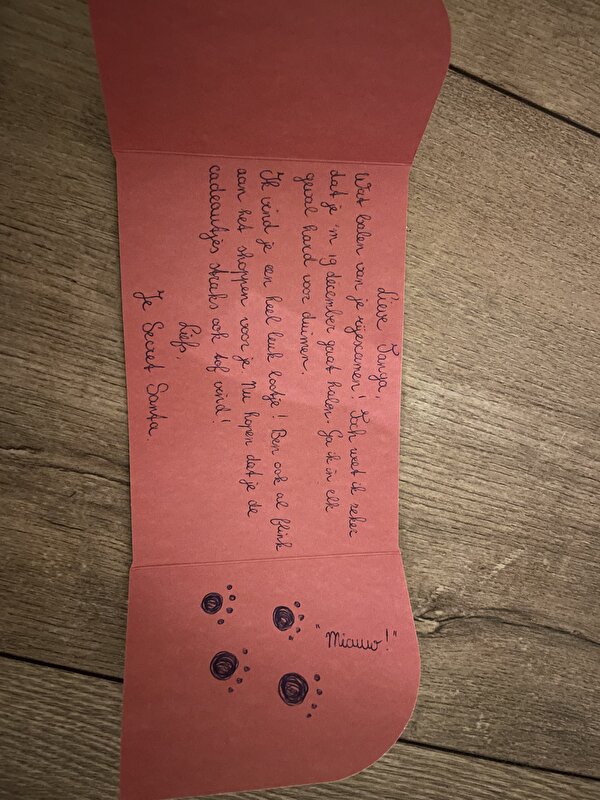 Lieve Tanya,
Wat balen van je rijexamen! Toch weet ik zeker
dat je 'm 19 december gaat halen. Ga ik in elk
geval hard voor duimen.
Ik vind je een heel leuk lootje! Ben ook al flink
aan het shoppen voor je. Nu hopen dat je de
cadeautjes straks ook tof vind!
Liefs,
Je Secret Santa.
"Miauw!"